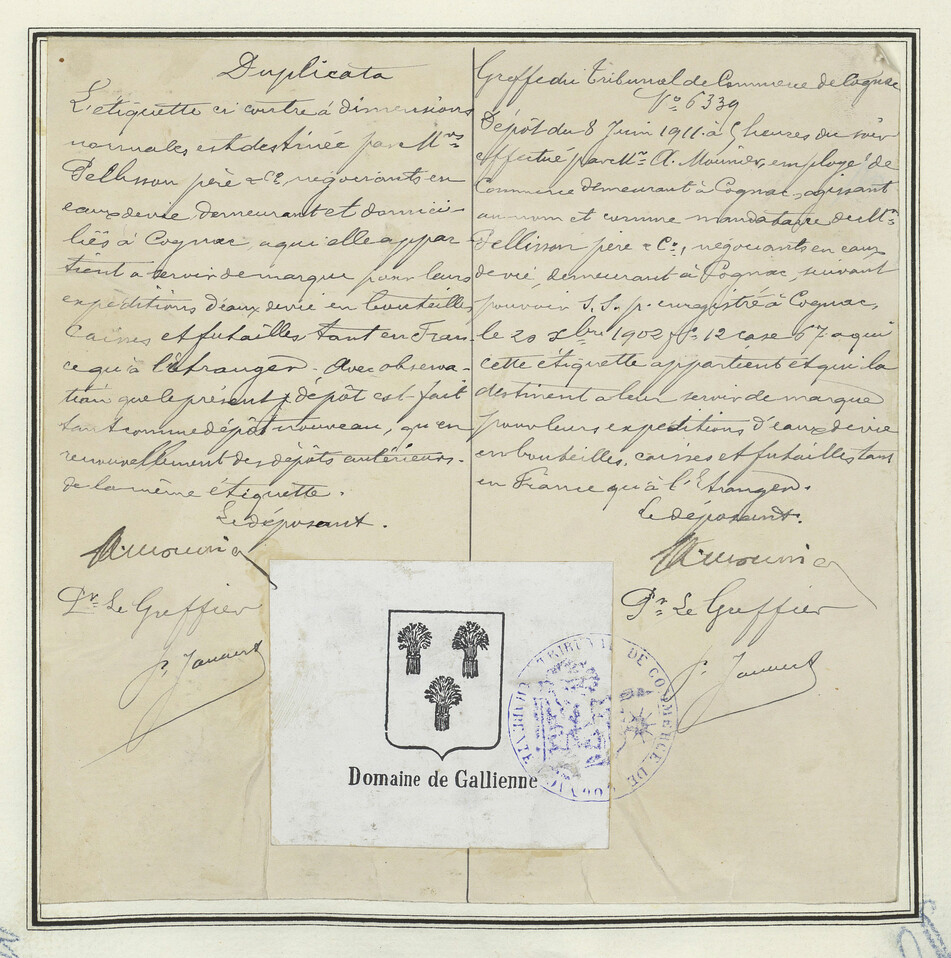 Duplicata
L'etiquette ci contre à dimensions
normales est destinée par Mrs
Pellisson père & Cie, négociants en
eaux de vie demeurant et domici-
liés à Cognac, a qui elle appar-
tient a servir de marque pour leurs
expéditions d'eaux de vie en bouteilles
caisses et futailles tant en Fran-
ce qu'à l'étranger. Avec observa-
tion que le présent dépôt est fait
tant comme dépôt nouveau, qu'en
renouvellement des dépôts antérieurs-
de la même étiquette.
Le déposant.
A. Mounier
Pr Le Greffier
Greffe du Tribunal de Commerce de Cognac
No 6339
Dépôt du 8 Juin 1911 à 5 heures du soir
effectué par Mr A. Mounier, employé de
Commerce demeurant à Cognac, agissant
au nom et comme mandataire de Mrs
Pellisson père & Cie, négociants en eaux
de vie, demeurant à Cognac, suivant
pouvoir S.S. p. enregistré à Cognac,
le 20 Xbre 1902 fo 12 case 67 a qui
cette étiquette appartient et qui la
destinent a leur servir de marque
pour leurs expeditions d'eaux de vie
en bouteilles, caisses et futailles tant
en France qu'à l'Etranger.
Le déposant.
A. Mounier
Pr Le Greffier
Domaine de Gallienne
TRIBUNAL DE COMMERCE DE COGNAC